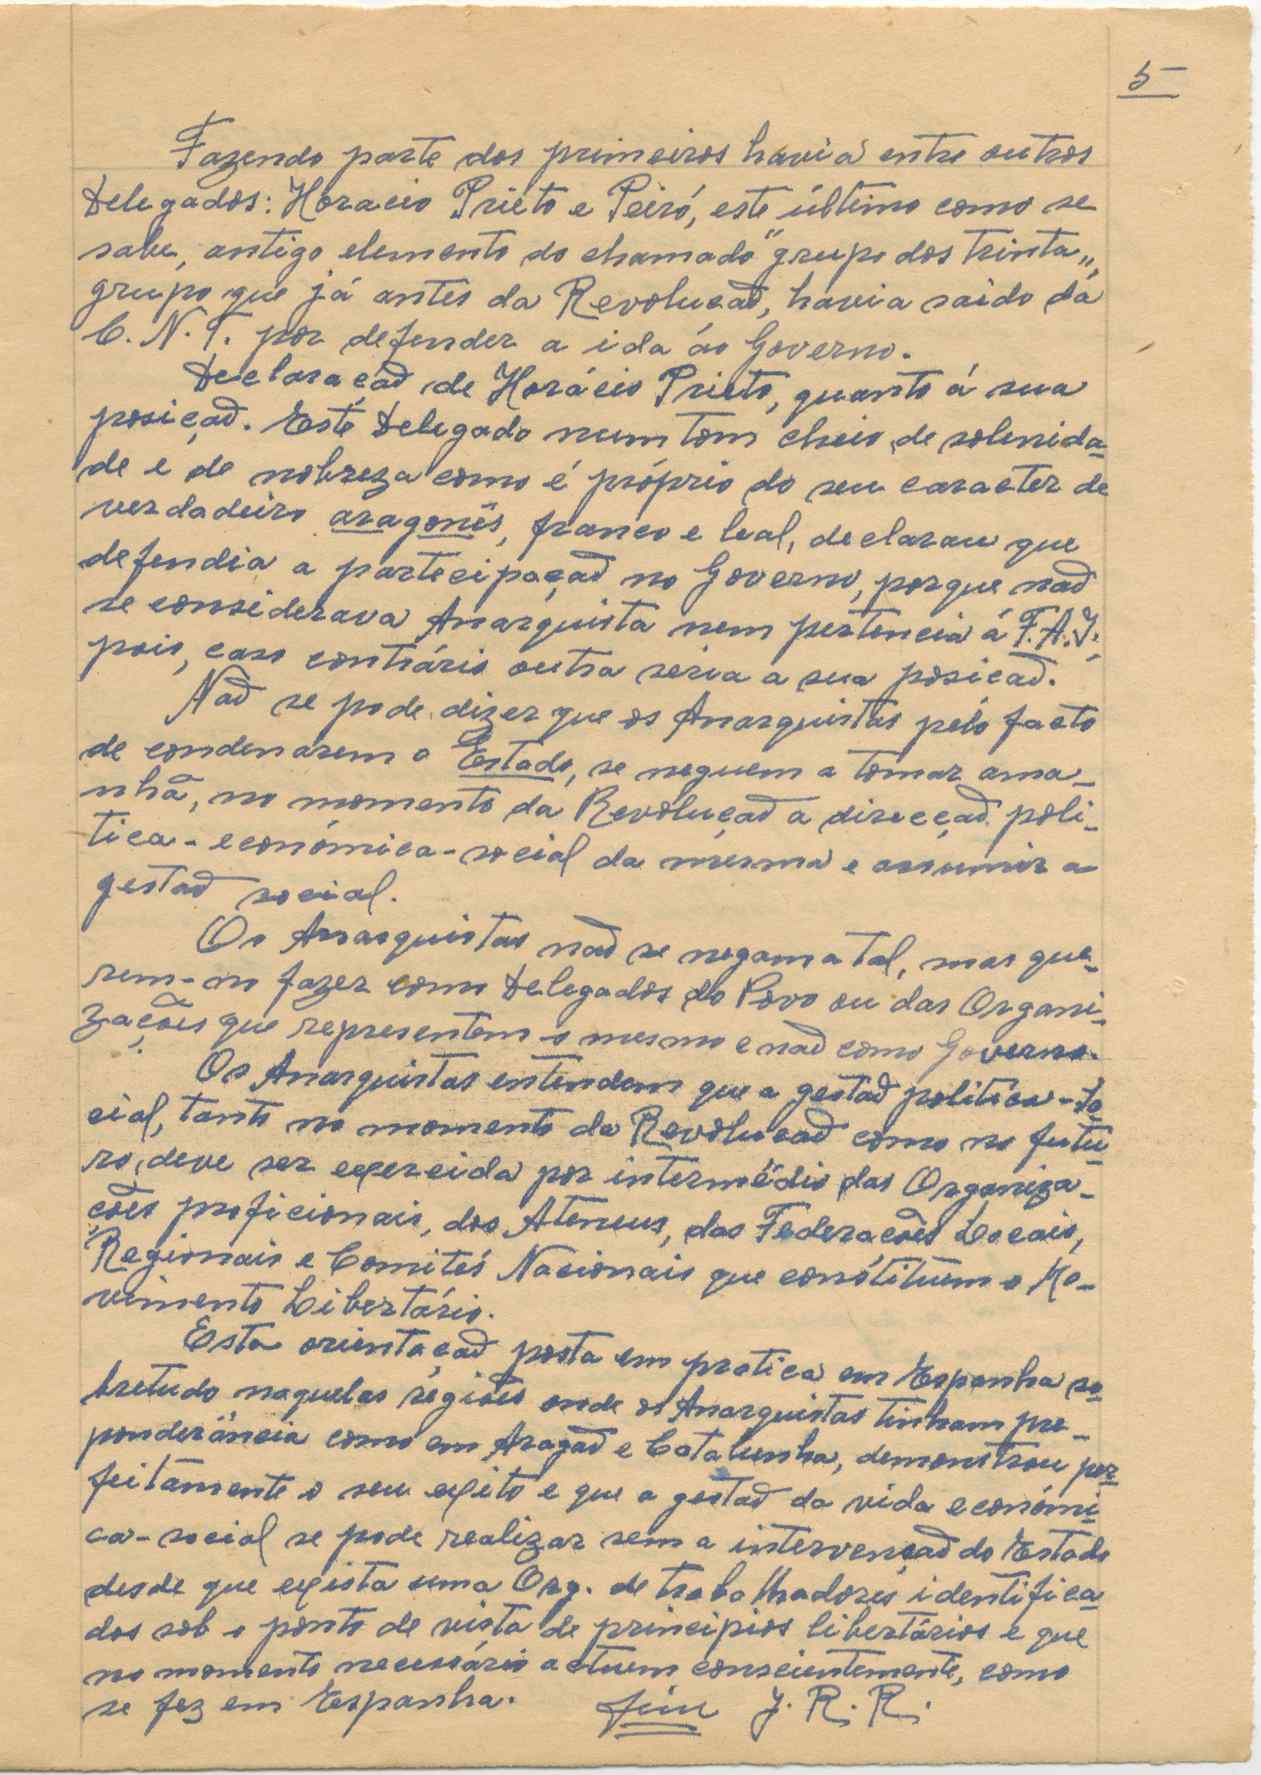 5
Fazendo parte dos primeiros havia entre outros
Delegados: Horacio Prieto e Peiró, este último como se
sabe, antigo elemento do chamado "grupo dos trinta",
grupo que já antes da Revolucaõ, havia saido da
C. N. T. por defender a ida áo Governo.
Declaraçaõ de Horácio Prieto, quanto á sua
posiçaõ. Este Delegado num tom cheio de solenida-
de e de nobreza como é próprio do seu caracter de
verdadeiro aragonês, franco e leal, declarou que
defendia a partecipaçaõ no Governo, porque naõ
se considerava Anarquista nem pertencia á F.A.I.,
pois, caso contrário outra seria a sua posicaõ.
Naõ se pode dizer que os Anarquistas pelo facto
de condenarem o Estado, se neguem a tomar ama-
nhã, no momento da Revoluçaõ a direcçaõ poli-
tica-económica-social da mesma e assumir a
gestaõ social.
Os Anarquistas naõ se negam a tal, mas que-
rem-no fazer como Delegados do Povo ou das Organi-
zações que representem o mesmo e naõ como Governo.
Os Anarquistas entendem que a gestaõ politica-so-
cial, tanto no momento da Revolucaõ como no futu-
ro, deve ser exercida por intermédio das Organiza-
ções proficionais, dos Ateneus, das Federações Locais,
Regionais e Comités Nacionais que constituem o Mo-
vimento Libertário.
Esta orientaçaõ posta em pratica em Espanha so-
bretudo naquelas regiões onde os Anarquistas tinham pre-
ponderância como em Aragaõ e Catalunha, demonstrou per-
feitamente o seu exito e que a gestaõ da vida económi-
ca-social se pode realizar sem a intervencaõ do Estado
desde que exista uma Org. de trabalhadores identifica-
dos sob o ponto de vista de principios libertários e que
no momento necessário actuem conscientemente, como
se fez em Espanha. Fim J. R. R.